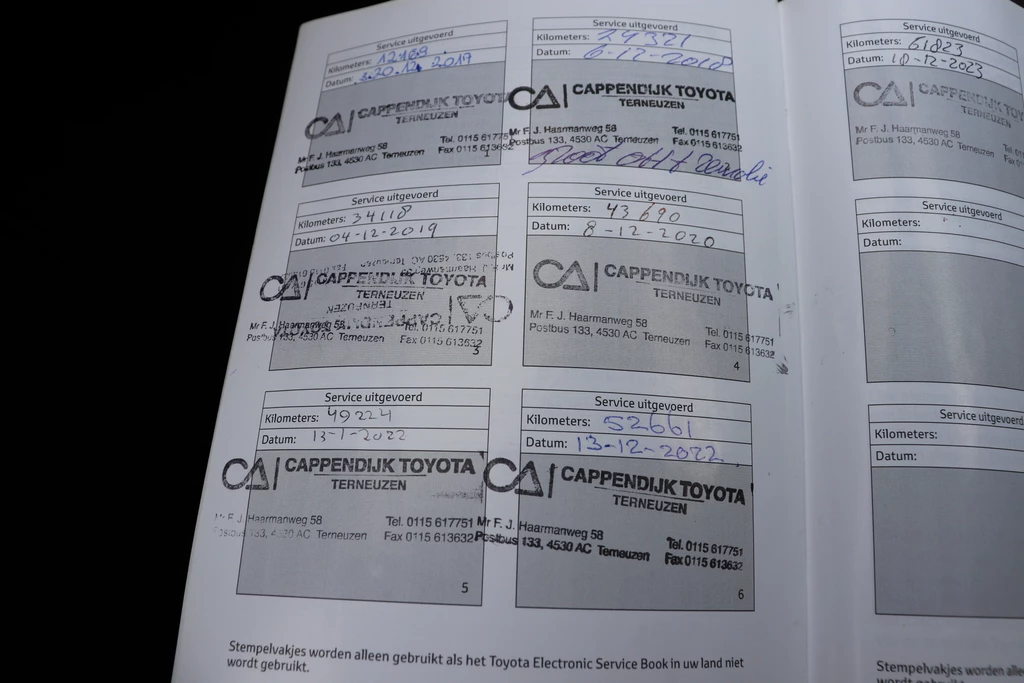 Service uitgevoerd
Kilometers: 12169
Datum: 20.12.2017
CA | CAPPENDIJK TOYOTA
TERNEUZEN
Mr F. J. Haarmanweg 58 Tel. 0115 617751
Postbus 133, 4530 AC Terneuzen Fax 0115 613632
1
Service uitgevoerd
Kilometers: 24321
Datum: 6-12-2018
CA | CAPPENDIJK TOYOTA
TERNEUZEN
Mr F. J. Haarmanweg 58 Tel. 0115 617751
Postbus 133, 4530 AC Terneuzen Fax 0115 613632
Service uitgevoerd
Kilometers: 34118
Datum: 04-12-2019
CA | CAPPENDIJK TOYOTA
TERNEUZEN
Mr F. J. Haarmanweg 58 Tel. 0115 617751
Postbus 133, 4530 AC Terneuzen Fax 0115 613632
3
Service uitgevoerd
Kilometers: 43690
Datum: 8-12-2020
CA | CAPPENDIJK TOYOTA
TERNEUZEN
Mr F. J. Haarmanweg 58 Tel. 0115 617751
Postbus 133, 4530 AC Terneuzen Fax 0115 613632
4
Service uitgevoerd
Kilometers: 49224
Datum: 13-1-2022
CA | CAPPENDIJK TOYOTA
TERNEUZEN
Mr F. J. Haarmanweg 58 Tel. 0115 617751
Postbus 133, 4530 AC Terneuzen Fax 0115 613632
5
Service uitgevoerd
Kilometers: 52661
Datum: 13-12-2022
CA | CAPPENDIJK TOYOTA
TERNEUZEN
Mr F. J. Haarmanweg 58 Tel. 0115 617751
Postbus 133, 4530 AC Terneuzen Fax 0115 613632
6
Stempelvakjes worden alleen gebruikt als het Toyota Electronic Service Book in uw land niet
wordt gebruikt.
Service uitgevoerd
Kilometers: 61823
Datum: 10-12-2023
CA | CAPPENDIJK TOY
TERNEUZEN
Mr F. J. Haarmanweg 58
Postbus 133, 4530 AC Terneuzen
Service uitgevoerd
Kilometers:
Datum:
Service uitgevoerd
Kilometers:
Datum:
Stempelvakjes worden alle
wordt gebruikt.